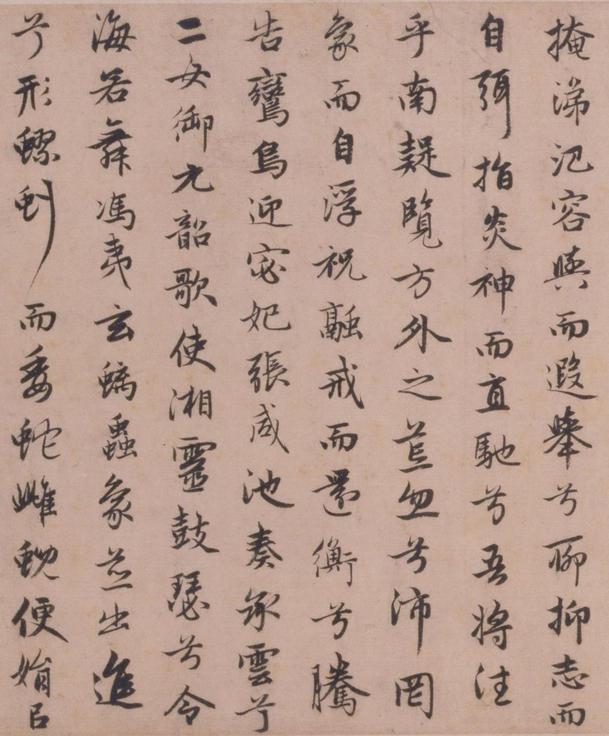 掩涕氾容與而遐舉兮聊抑志而
自弭指炎神而直馳兮吾將往
乎南疑覽方外之荒忽兮沛罔
象而自浮祝融戒而還衡兮騰
告鸞鳥迎宓妃張咸池奏承雲兮
二女御九韶歌使湘靈鼓瑟兮令
海若舞馮夷玄螭蟲象並出進
兮形蟉虯而委蛇雌蜺便娟㠯